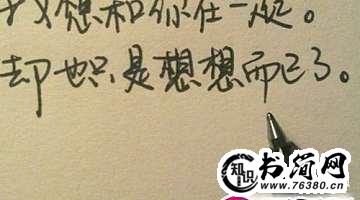 我想和你在一起。
却也只是想想而已了。
知识
书简网
www.76380.cn